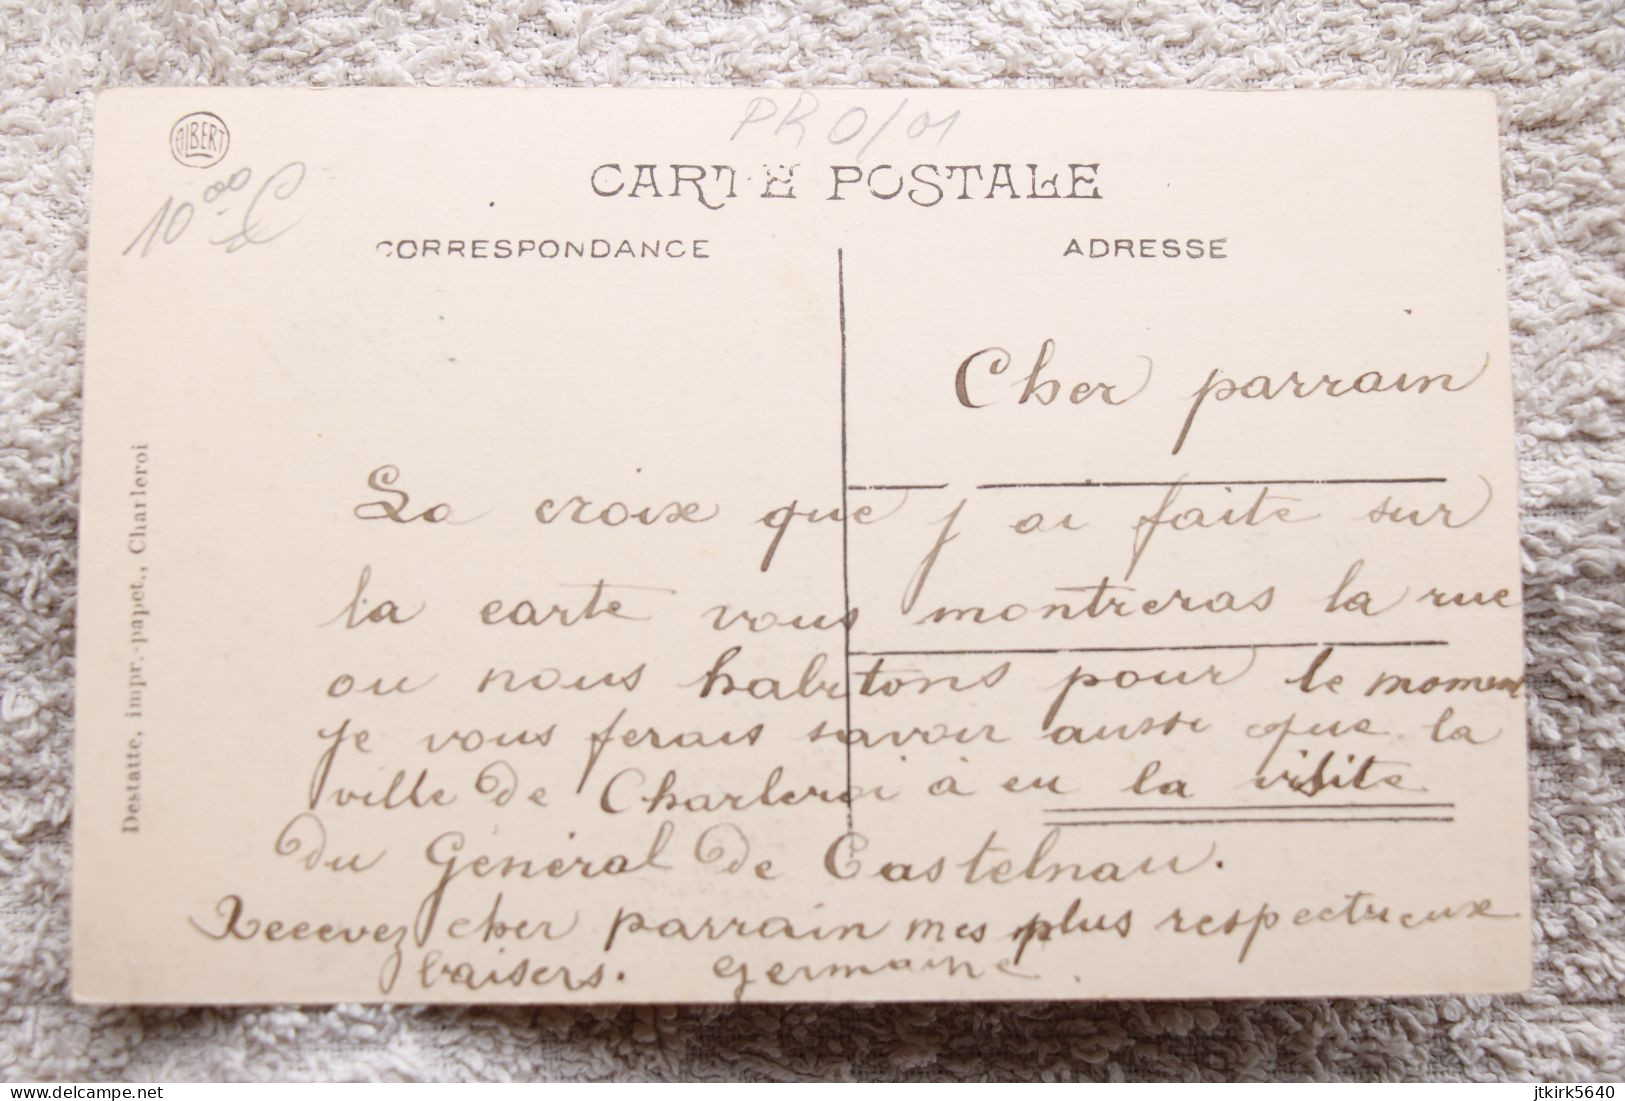 PR 0/01
ALBERT
10,00 €
CARTE POSTALE
CORRESPONDANCE
ADRESSE
Destatte, impr.-papet., Charleroi
Cher parrain
La croix que j ai faite sur
la carte vous montreras la rue
ou nous habitons pour le moment
je vous ferais savoir aussi que la
ville de Charleroi à eu la visite
du Général de Castelnau.
Recevez cher parrain mes plus respectueux
baisers. Germaine.
delcampe.net
jtkirk5640